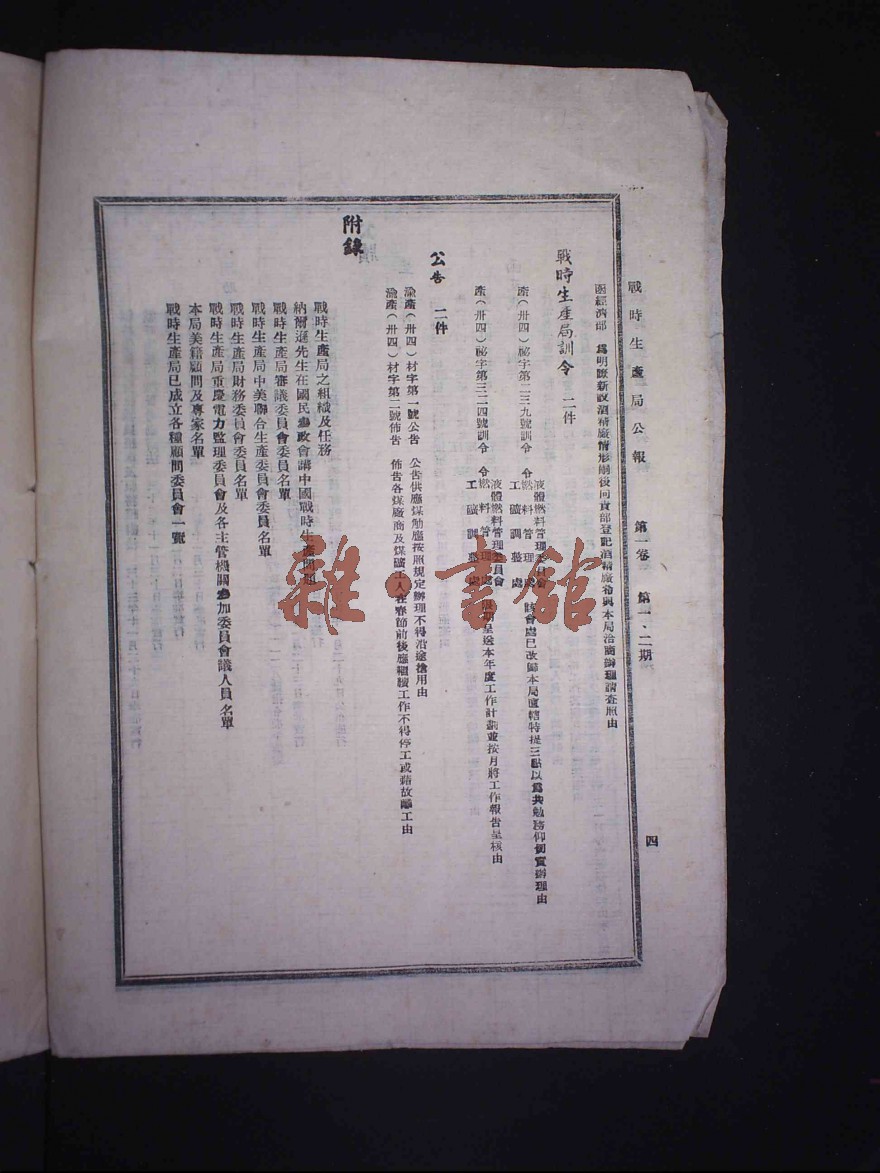 戰時生產局公報　第一卷　第一、二期　四
函經濟部　爲明瞭新設酒精廠情形嗣後向貴部登記酒精廠希與本局洽商辦理請查照由
戰時生產局訓令　二件
產（卅四）祕字第二三九號訓令　令　液體燃料管理委員會　燃料管理處　工礦調整處　該會處已改歸本局直轄特提三點以爲共勉務仰切實辦理由
產（卅四）祕字第三二四號訓令　令　液體燃料管理委員會　燃料管理處　工礦調整處　限期呈送本年度工作計劃並按月將工作報告呈核由
公告　二件
渝產（卅四）材字第一號公告　公告供應煤觔應按照規定辦理不得沿途搶用由
渝產（卅四）材字第二號佈告　佈告各煤廠商及煤礦工人在春節前後應繼續工作不得停工或藉故離工由
附錄
戰時生產局之組織及任務
納爾遜先生在國民參政會講中國戰時生產問題
戰時生產局審議委員會委員名單
戰時生產局中美聯合生產委員會委員名單
戰時生產局財務委員會委員名單
戰時生產局重慶電力監理委員會及各主管機關參加委員會議人員名單
本局美籍顧問及專家名單
戰時生產局已成立各種顧問委員會一覽
雜·書館